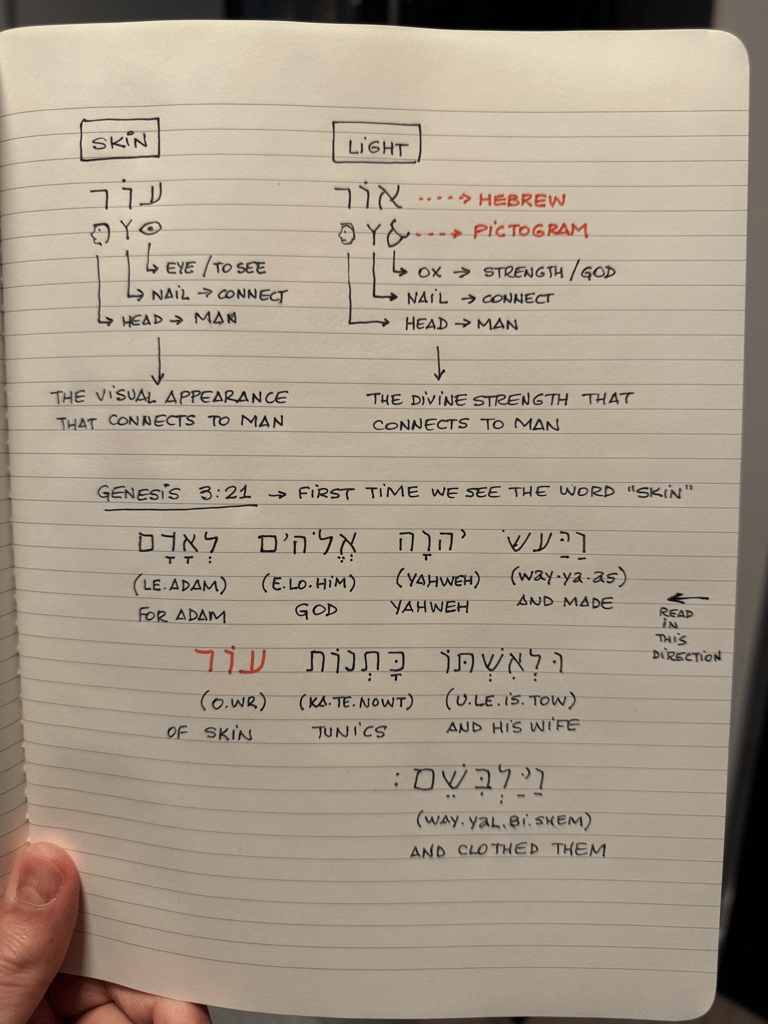 SKIN
עוֹר
EYE / TO SEE
NAIL → CONNECT
HEAD → MAN
THE VISUAL APPEARANCE
THAT CONNECTS TO MAN
LIGHT
אוֹר ····> HEBREW
····> PICTOGRAM
OX → STRENGTH / GOD
NAIL → CONNECT
HEAD → MAN
THE DIVINE STRENGTH THAT
CONNECTS TO MAN
GENESIS 3:21 → FIRST TIME WE SEE THE WORD "SKIN"
וַיַּעַשׂ יְהוָה אֱלֹהִים לְאָדָם
(LE.ADAM) (E.LO.HIM) (YAHWEH) (WAY.YA.AS)
FOR ADAM GOD YAHWEH AND MADE
← READ
IN
THIS
DIRECTION
וּלְאִשְׁתּוֹ כָּתְנוֹת עוֹר
(O.WR) (KA.TE.NOWT) (U.LE.IS.TOW)
OF SKIN TUNICS AND HIS WIFE
וַיַּלְבִּשֵׁם :
(WAY.YAL.BI.SHEM)
AND CLOTHED THEM